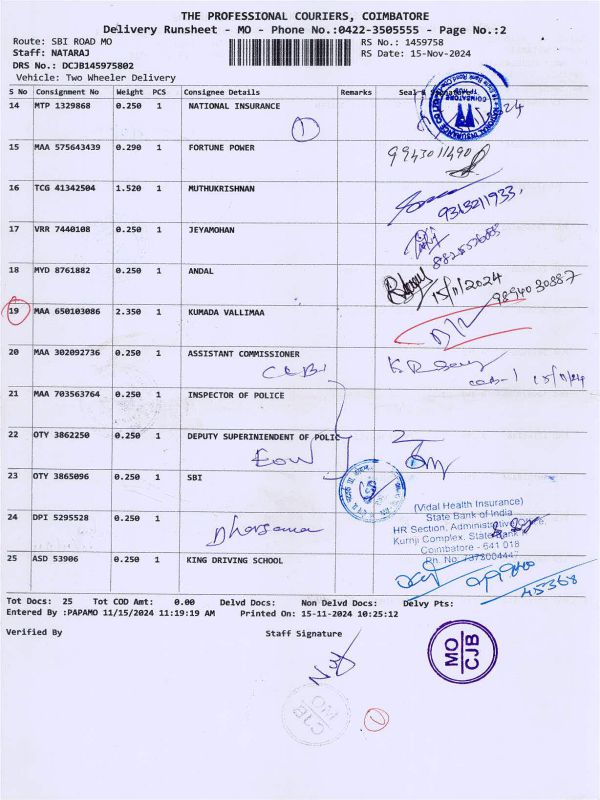 THE PROFESSIONAL COURIERS, COIMBATORE
Delivery Runsheet - MO - Phone No.:0422-3505555 - Page No.:2
Route: SBI ROAD MO RS No.: 1459758
Staff: NATARAJ RS Date: 15-Nov-2024
DRS No.: DCJB145975802
Vehicle: Two Wheeler Delivery
S No Consignment No Weight PCS Consignee Details Remarks Seal &
14 MTP 1329868 0.250 1 NATIONAL INSURANCE
1
15 MAA 575643439 0.290 1 FORTUNE POWER 9943011490
16 TCG 41342504 1.520 1 MUTHUKRISHNAN
17 VRR 7440108 0.250 1 JEYAMOHAN
18 MYD 8761882 0.250 1 ANDAL 15/11/2024
19 MAA 650103086 2.350 1 KUMADA VALLIMAA
20 MAA 302092736 0.250 1 ASSISTANT COMMISSIONER
21 MAA 703563764 0.250 1 INSPECTOR OF POLICE
22 OTY 3862250 0.250 1 DEPUTY SUPERINIENDENT OF POLIC
EOW
23 OTY 3865096 0.250 1 SBI
(Vidal Health Insurance)
State Bank of India
HR Section, Administrative
24 DPI 5295528 0.250 1
Kurnji Complex, State Bank
Coimbatore - 641 018
25 ASD 53906 0.250 1 KING DRIVING SCHOOL
Tot Docs: 25 Tot COD Amt: 0.00 Delvd Docs: Non Delvd Docs: Delvy Pts:
Entered By :PAPAMO 11/15/2024 11:19:19 AM Printed On: 15-11-2024 10:25:12
Verified By Staff Signature
MO
CJB
CJB
MO
1